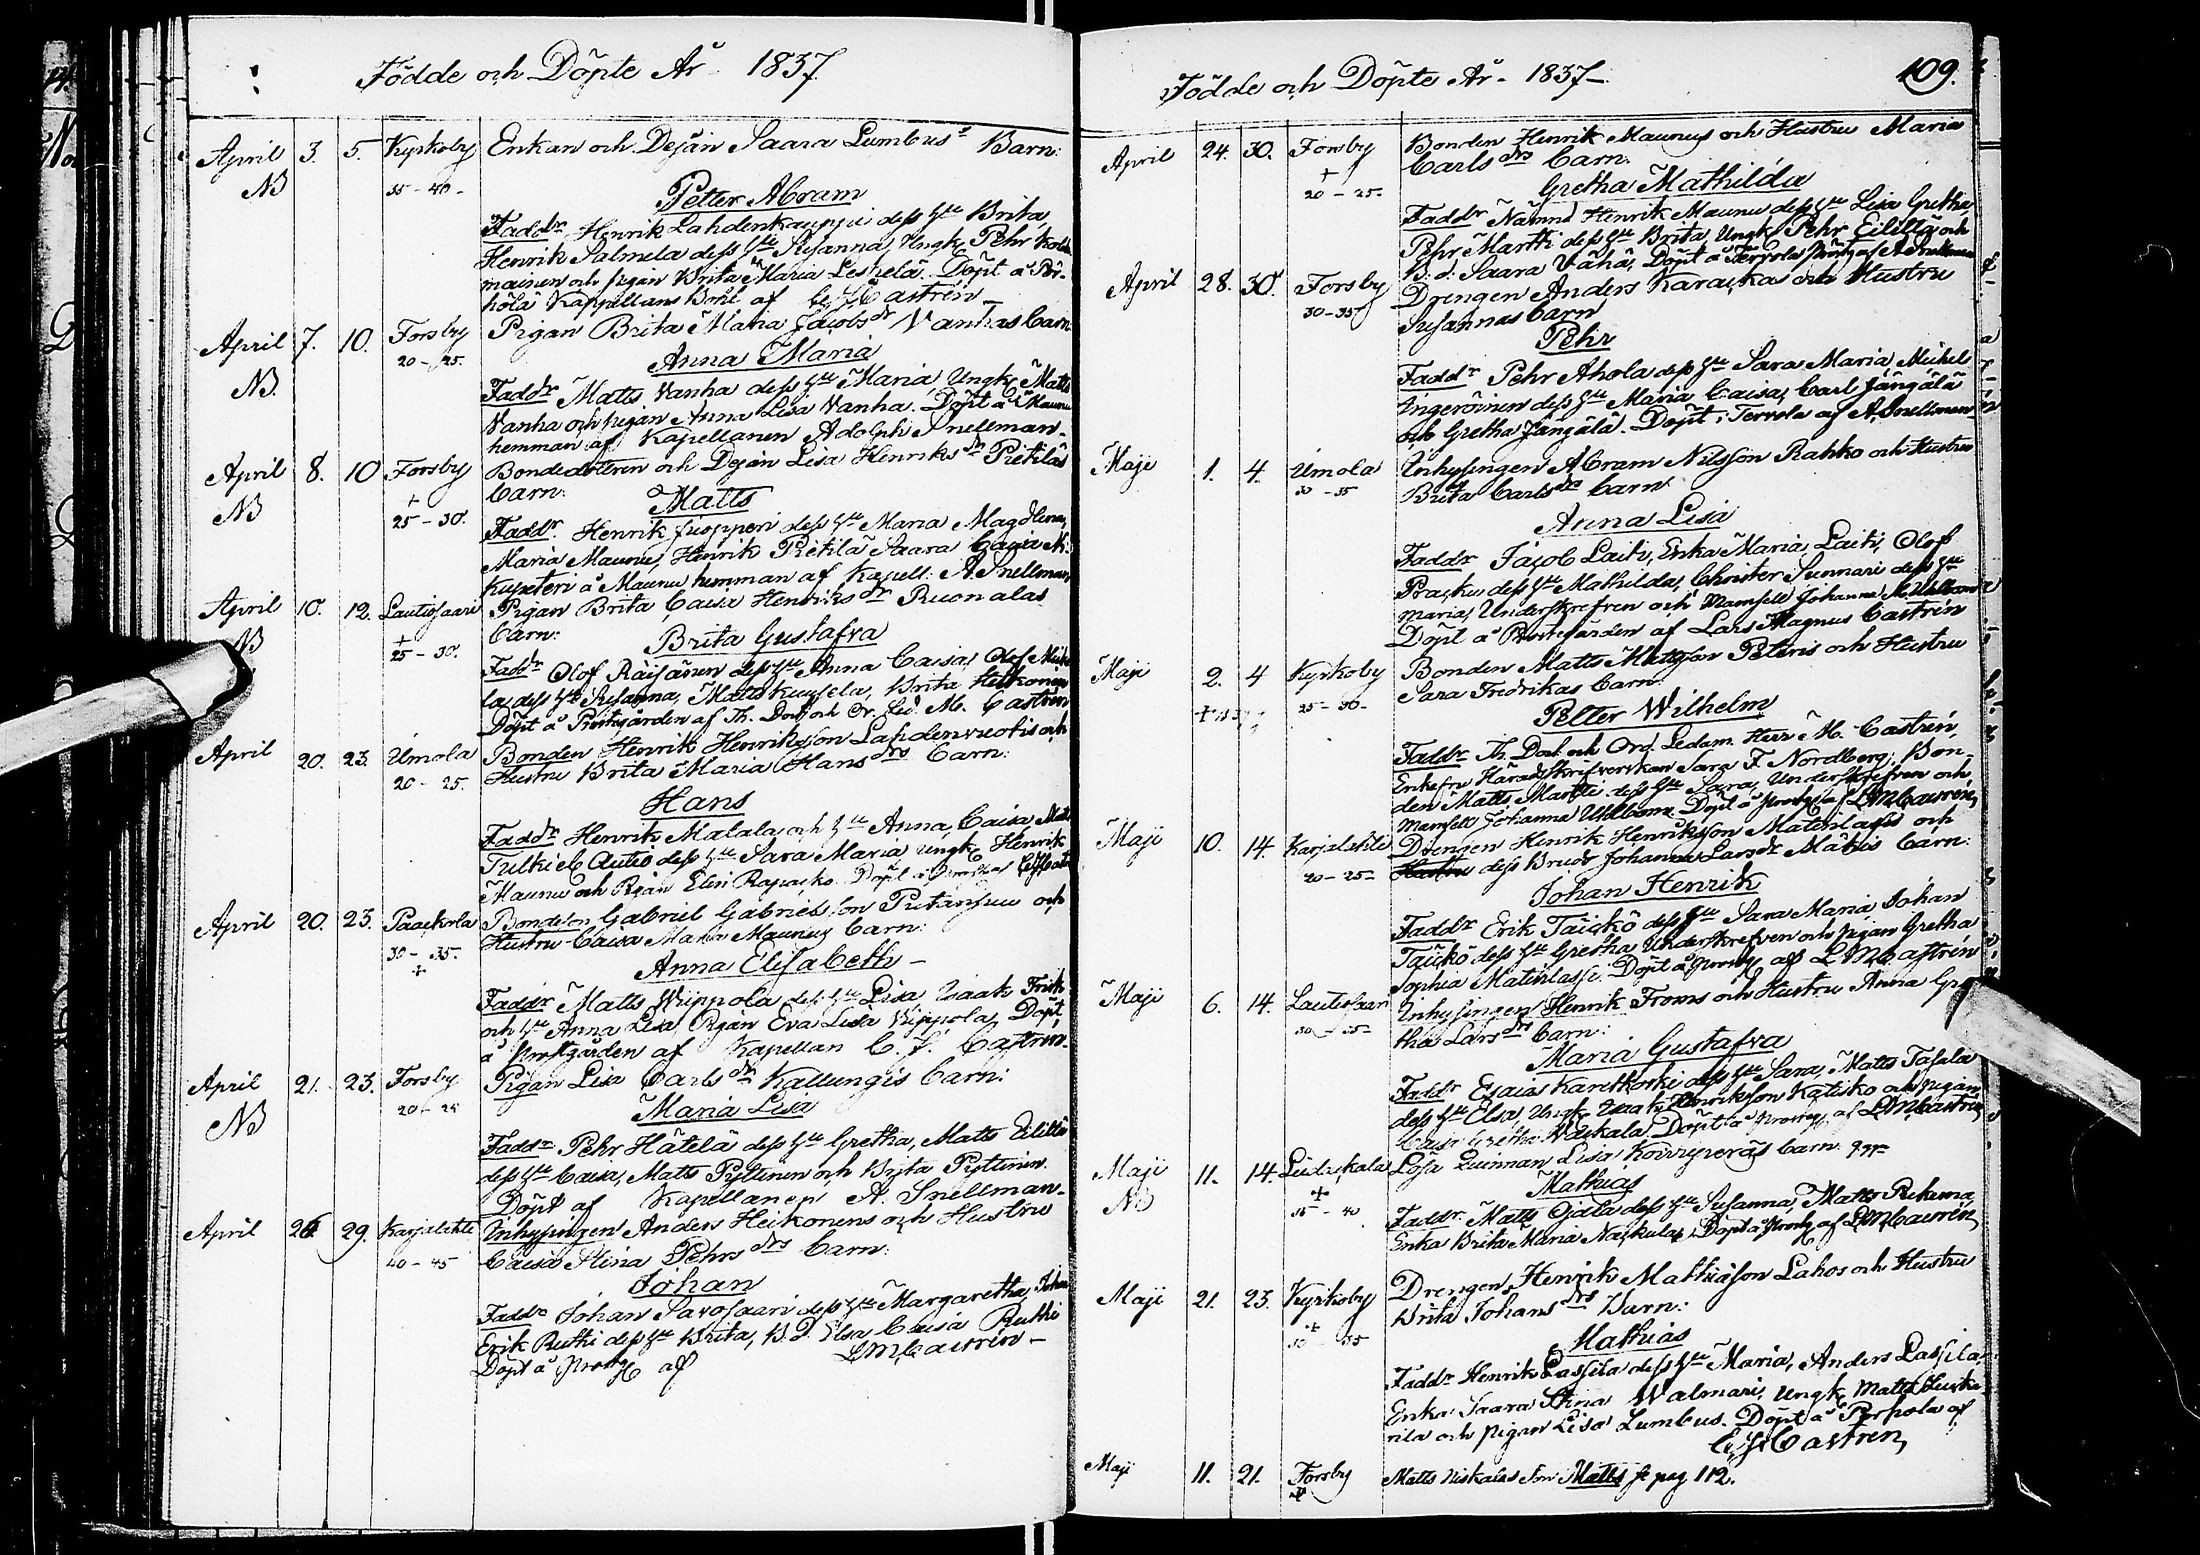 Födde och Döpte År 1837
April 3. 5. Kyrkoby Enkan och Dejan Saara Lumbus Barn:
NB 35-40-
Petter Abram
Faddr Henrik Lahdenkauppi dess Hu Brita
Henrik Palmela dess Hu Susanna, Ungk Pehr
mainen och pigan Brita Maria Leskelä. Döpt å
hölä Kappellans Bohl af Castrén
April 7. 10. Forsby Pigan Brita Maria Jacobsdr Vanhas barn
20-25.
Anna Maria
NB. Faddr Matts Vanha dess Hu Maria Ungk Matts
Vanha och pigan Anna Lisa Vanha. Döpt å Maunu
hemman af Kapellanen Adolph Snellman-
April 8. 10 Forsby Bondedottren och Dejan Lisa Henriksdr Pietiläs
NB + barn:
25-30. Matts
Faddr. Henrik Juopperi dess Hu Maria Magdlena,
Maria Maunu, Henrik Pietilä Saara Caisa M:
å Maunu hemman af Kapell: A. Snellman
April 10. 12. Lautiosaari Pigan Brita Caisa Henriksdr Ruonalas
NB + barn:
25-30. Brita Gustafva
Faddr Olof Räisänen dess Hu Anna Caisa, Olof
la dess Hu Susanna, Matts Brita Heikonen
Döpt å Prostgården af Th. Doct och Or. Led. M. Castrén
April 20. 23. Umola Bonden Henrik Henriksson Lahdenvuotis och
20-25. Hustru Brita Maria Hansdrs Barn:
Hans
Faddr Henrik Malala och Hu Anna Caisa
Autio dess Hu Sara Maria ungk Henrik
Maunu och Pigan Elin Rapacko. Döpt å
April 20. 23. Paackola Bondeson Gabriel Gabrielsson och
30-35. Hustru Caisa Maria Maunus barn:
+ Anna Elisabeth-
Faddr Matts Wiippola dess Hu Lisa, Isaak
och Hu Anna Lisa, Pigan Eva Lisa Wippola, Döpt
å Prostgården af Kapellan C. F. Castrén.
April 21. 23. Forsby Pigan Lisa Carlsdr Kallungis barn:
NB 20-25 Maria Lisa
Faddr Pehr Hätelä dess Hu Gretha, Matts Eilillä
dess Hu Caisa, Matts Pyttinen och Brita Pyttinen.
Döpt af Kapellanen A. Snellman-
April 26 29. Karjalahti Inhysingen Anders Heikonens och Hustru
40-45 Caisa Stina Pehrsdrs barn:
Johan
Faddr Johan Savosaari dess Hu Margaretha,
Erik Ruthi dess Hu Brita, B. D. Elsa Caisa Ruthi
Döpt å Prostg af LMCastrén-
Födde och Döpte År- 1837- 109.
April 24. 30. Forsby Bonden Henrik Maunus och Hustru Maria
+ Carlsdrs barn:
20-25- Gretha Mathilda
Faddr Nämnd Henrik Maunu dess Hu Lisa Gretha
Pehr Martti dess Hu Brita, Ungk Pehr Eilillä och
B. d. Saara Vähä, Döpt å Tervola af A Snellman
April 28. 30. Forsby Drengen Anders Karackas och Hustru
30-35 Susannas barn
Pehr
Faddr Pehr Ahola dess Hu Sara Maria, Michel
Ingeröinen dess Hu Maria Caisa, Carl Jängälä
och Gretha Jängälä. Döpt i Tervola af A. Snellman
Maji 1. 4. Umola Inhysingen Abram Nilsson Rahko och Hustru
30-35 Brita Carlsdrs barn
Anna Lisa
Faddr Jacob Laiti, Enka Maria Laiti, Olof
dess Hu Mathilda, Christer Sunnari dess Hu
Maria, Underskrefven och Mamsell Johanna
Döpt å Prostgården af Lars Magnus Castrén
Maji 2. 4 Kyrkoby Bonden Matts Mattsson Peteris och Hustru
25-30- Sara Fredrikas barn:
Petter Wilhelm
Faddr Th. Doct och Ord. Ledam. Herr M. Castrén,
Enkefru Häradsskrifverskan Sara F. Nordberg, Bon-
den Matts Martti dess Hu Sara, Underskrefven och
Mamsell Johanna Uhlbom. Döpt å Prostg af LMCastrén,
Maji 10. 14. Karjalahti Drengen Henrik Henriksson Matinlassis och
20-25- Hustru dess Brud Johanna Larsdr Mäkis barn:
Johan Henrik
Faddr Erik Taickö dess Hu Sara Maria, Johan
Taickö dess Hu Gretha Underskrefven och pigan Gretha
Sophia Matinlassi. Döpt å Prostg af LMCastrén
Maji 6. 14. Lautiosaari Inhysingen Henrik Froms och Hustru Anna Gre
30-35- tha Larsdrs barn:
Maria Gustafva
Faddr Esaias Karetkoski dess Hu Sara, Matts Tasala
dess Hu Elsa, Ungk Isaak Henriksson Katisko och pigan
Caisa Gretha Waskala, Döpt å Prostg af LMCastrén
Maji 11. 14. Liedackala Lösa Quinnan Lisa barn.
NB + Mathias
35-40 Faddr Matts Ojala dess Hu Susanna, Matts
Enka Brita Maria Nackula, Döpt å Prostg af LMCastrén
Maji 21. 23. Kyrkoby Drengen Henrik Mathiasson Lahos och Hustru
+ Brita Johansdrs Barn:
30-35 Mathias
Faddr Henrik Lassila dess Hu Maria, Anders Lassila,
Enka Saara Stina Walmari, Ungk Matts
rila och pigan Lisa Lumbus. Döpt å Perhola af
Castrén
Maji 11. 21. Forsby Matts Niskalas son Matts se pag 112.